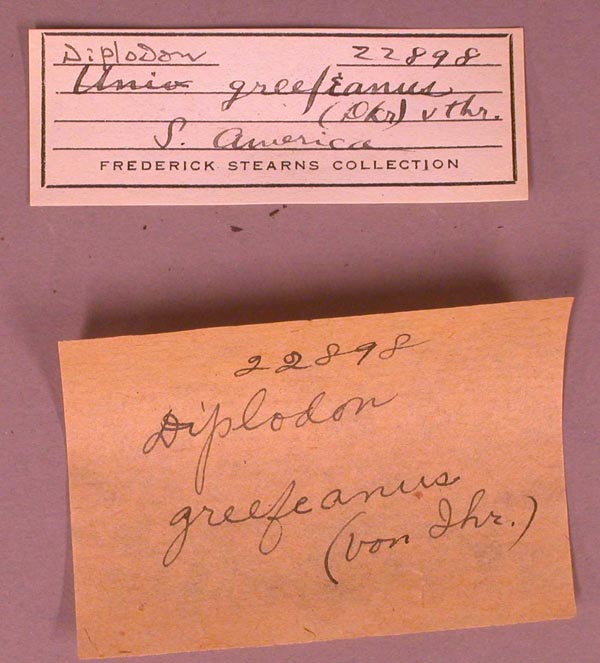 Diplodon 22898
Unio greefeanus
(Dkr) v Ihr.
S. America
FREDERICK STEARNS COLLECTION
22898
Diplodon
greefeanus
(von Ihr.)